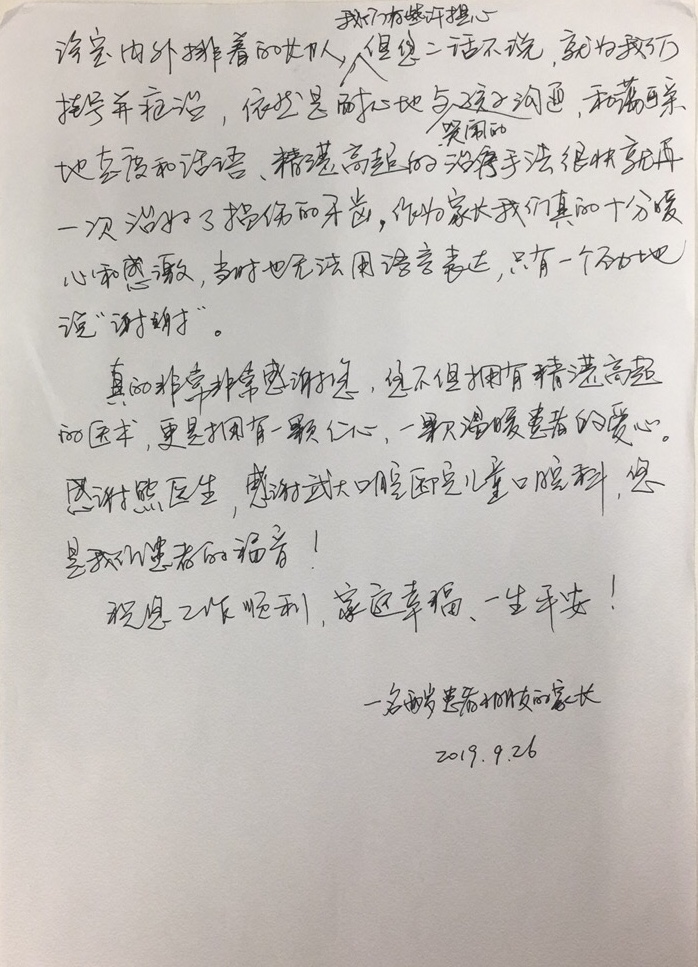 我们有些许担心
诊室内外排着的长队，但您二话不说，就为我们
挂号并在诊，依然是耐心地与孩子沟通，和蔼可亲
哭闹的
地态度和话语、精湛高超的治疗手法很快就再
一次治好了损伤的牙齿，作为家长我们真的十分暖
心和感激，当时也无法用语言表达，只有一个劲地
说“谢谢”。
真的非常非常感谢您，您不但拥有精湛高超
的医术，更是拥有一颗仁心，一颗温暖患者的爱心。
感谢熊医生，感谢武大口腔医院儿童口腔科，您
是我们患者的福音！
祝您工作顺利，家庭幸福、一生平安！
一名两岁患者小朋友的家长
2019.9.26